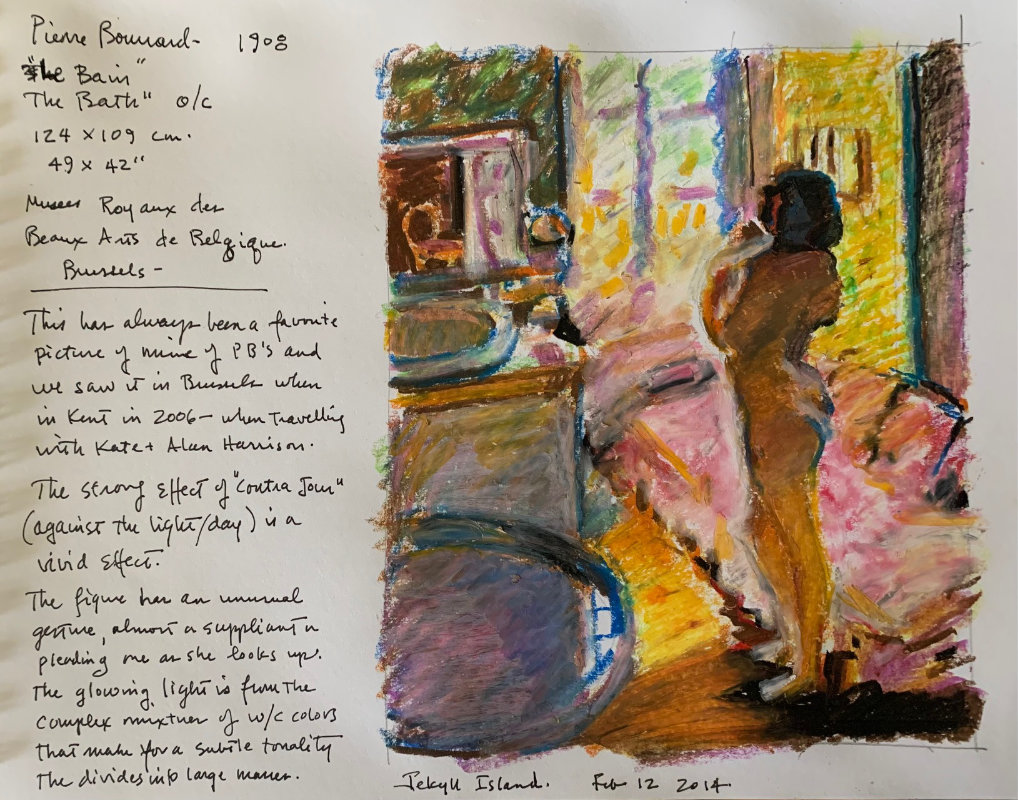 Pierre Bonnard- 1908
"Le Bain"
The Bath" o/c
124 x 109 cm.
49 x 42"
Musees Royaux des
Beaux Arts de Belgique.
Brussels -
This has always been a favorite
picture of mine of PB's and
we saw it in Brussels when
in Kent in 2006 - when travelling
with Kate + Alan Harrison.
The strong effect of "Contra Jour"
(against the light/day) is a
vivid effect.
The figure has an unusual
gesture, almost a suppliant or
pleading one as she looks up.
The glowing light is from the
complex mixture of w/c colors
that make for a subtle tonality
the divides into large masses.
Jekyll Island. Feb 12 2014.